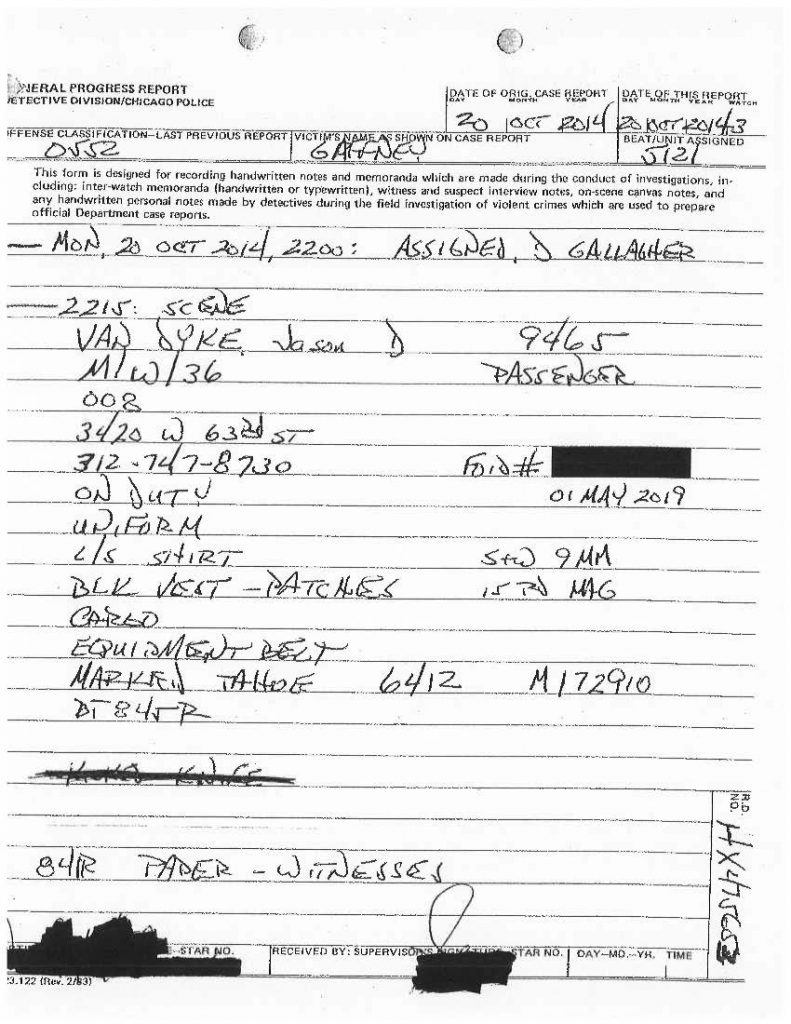 GENERAL PROGRESS REPORT
DETECTIVE DIVISION/CHICAGO POLICE
DATE OF ORIG. CASE REPORT
DAY MONTH YEAR
20 OCT 2014
DATE OF THIS REPORT
DAY MONTH YEAR WATCH
20 OCT 2014 3
OFFENSE CLASSIFICATION—LAST PREVIOUS REPORT
0552
VICTIM'S NAME AS SHOWN ON CASE REPORT
GAFFNEY
BEAT/UNIT ASSIGNED
5121
This form is designed for recording handwritten notes and memoranda which are made during the conduct of investigations, in-
cluding: inter-watch memoranda (handwritten or typewritten), witness and suspect interview notes, on-scene canvas notes, and
any handwritten personal notes made by detectives during the field investigation of violent crimes which are used to prepare
official Department case reports.
— MON, 20 OCT 2014, 2200: ASSIGNED, D GALLAGHER
— 2215: SCENE
VAN DYKE, Jason D 9465
M/W/36 PASSENGER
008
34/20 W 63RD ST
312-747-8730 FOID#
ON DUTY 01 MAY 2019
UNIFORM
L/S SHIRT S+W 9MM
BLK VEST - PATCHES 15 RD MAG
CARGO
EQUIPMENT BELT
MARKED TAHOE 6412 M172910
BT 845R
KNIFE
841R PAPER - WITNESSES
R.D. NO. HX475653
STAR NO.
RECEIVED BY: SUPERVISOR'S SIGNATURE STAR NO.
DAY—MO.—YR. TIME
23.122 (Rev. 2/83)